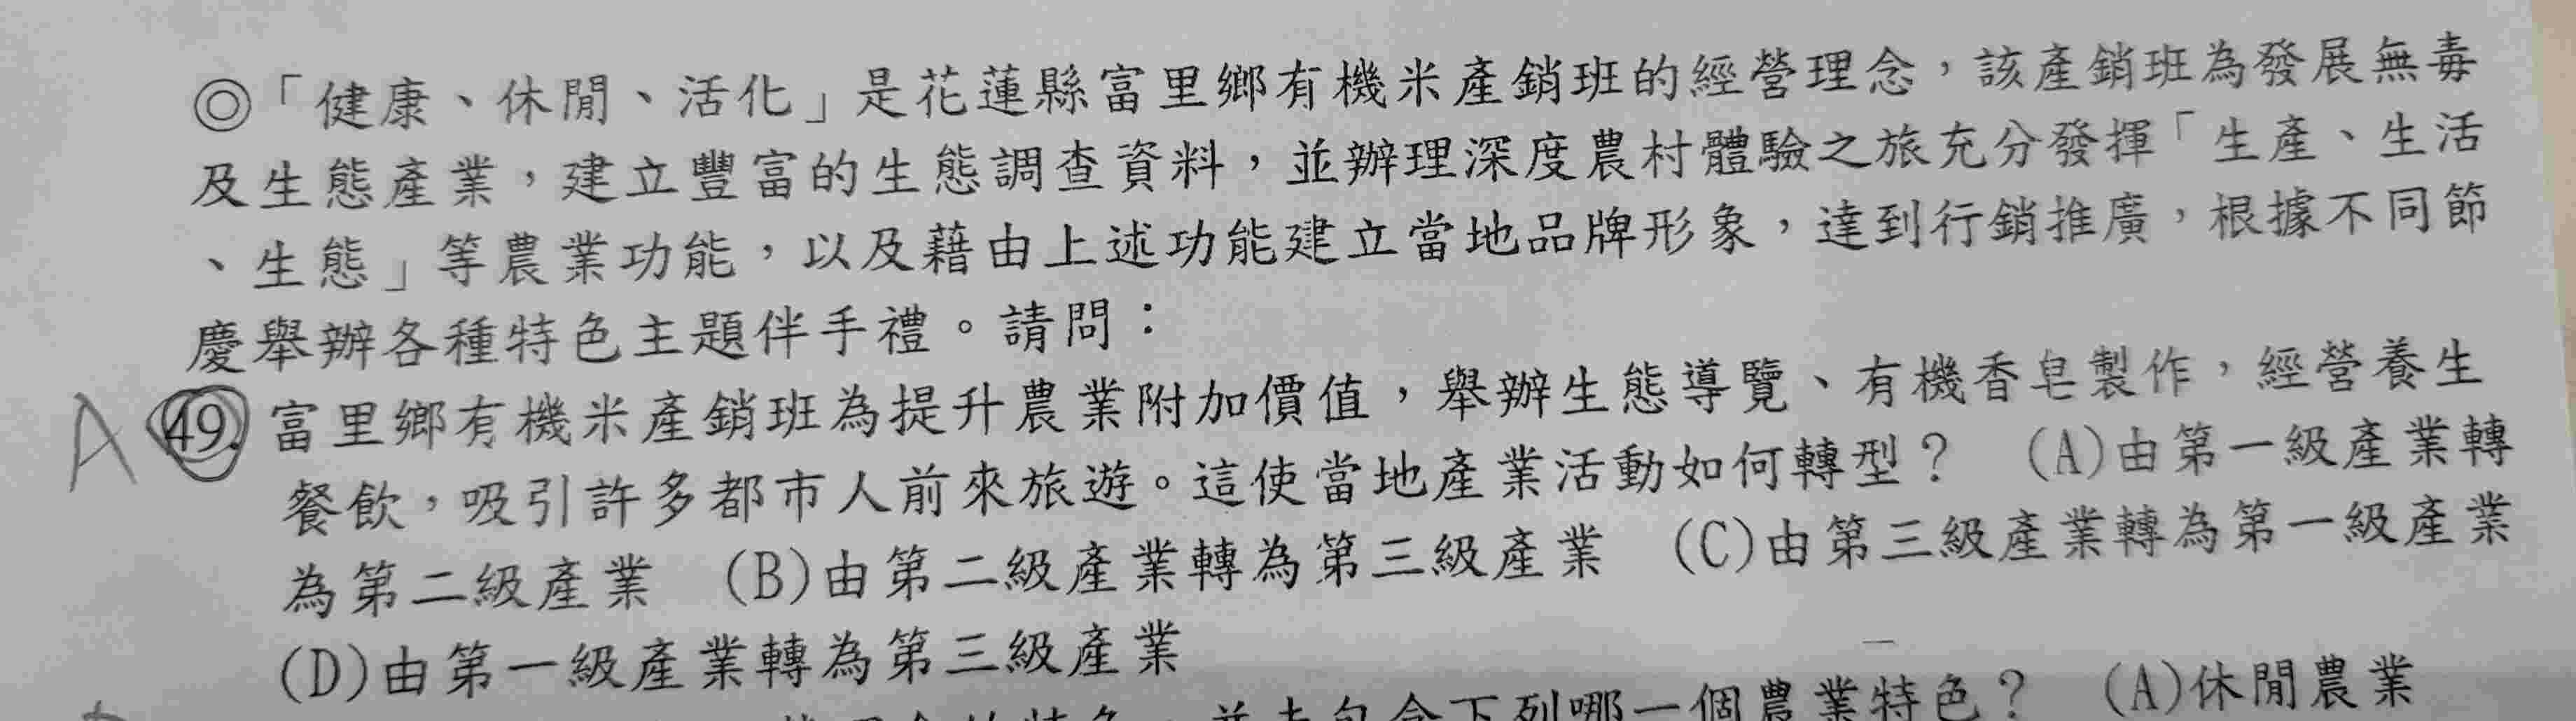 ◎「健康、休閒、活化」是花蓮縣富里鄉有機米產銷班的經營理念，該產銷班為發展無毒
及生態產業，建立豐富的生態調查資料，並辦理深度農村體驗之旅充分發揮「生產、生活
、生態」等農業功能，以及藉由上述功能建立當地品牌形象，達到行銷推廣，根據不同節
慶舉辦各種特色主題伴手禮。請問：
A 49. 富里鄉有機米產銷班為提升農業附加價值，舉辦生態導覽、有機香皂製作，經營養生
餐飲，吸引許多都市人前來旅遊。這使當地產業活動如何轉型？ (A)由第一級產業轉
為第二級產業 (B)由第二級產業轉為第三級產業 (C)由第三級產業轉為第一級產業
(D)由第一級產業轉為第三級產業
下列哪一個農業特色？ (A)休閒農業